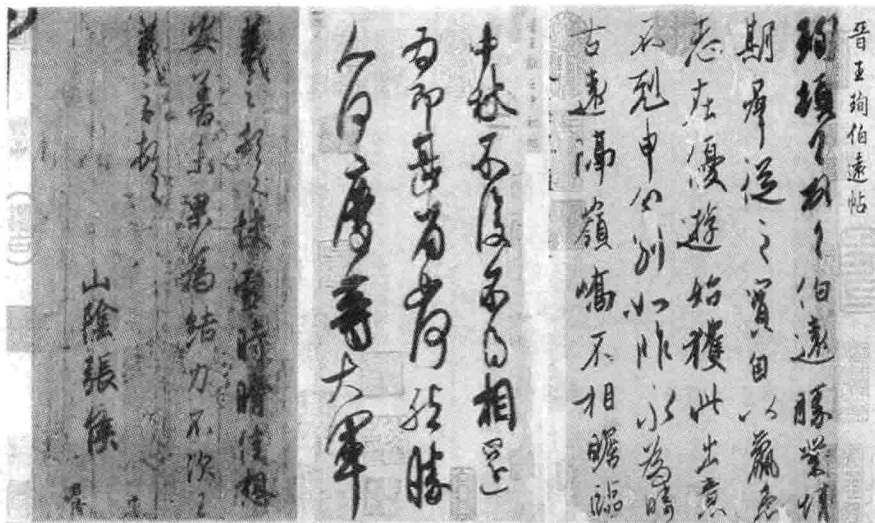 晉王珣伯遠帖
珣頓首頓首伯遠勝業情
期羣從之寶自以羸患
志在優遊始獲此出意
不剋申分別如昨永為疇
古遠隔嶺嶠不相瞻臨
中秋不復不得相還
為即甚省如何然勝
人何慶等大軍
羲之頓首快雪時晴佳想
安善未果為結力不次王
羲之頓首
山陰張侯